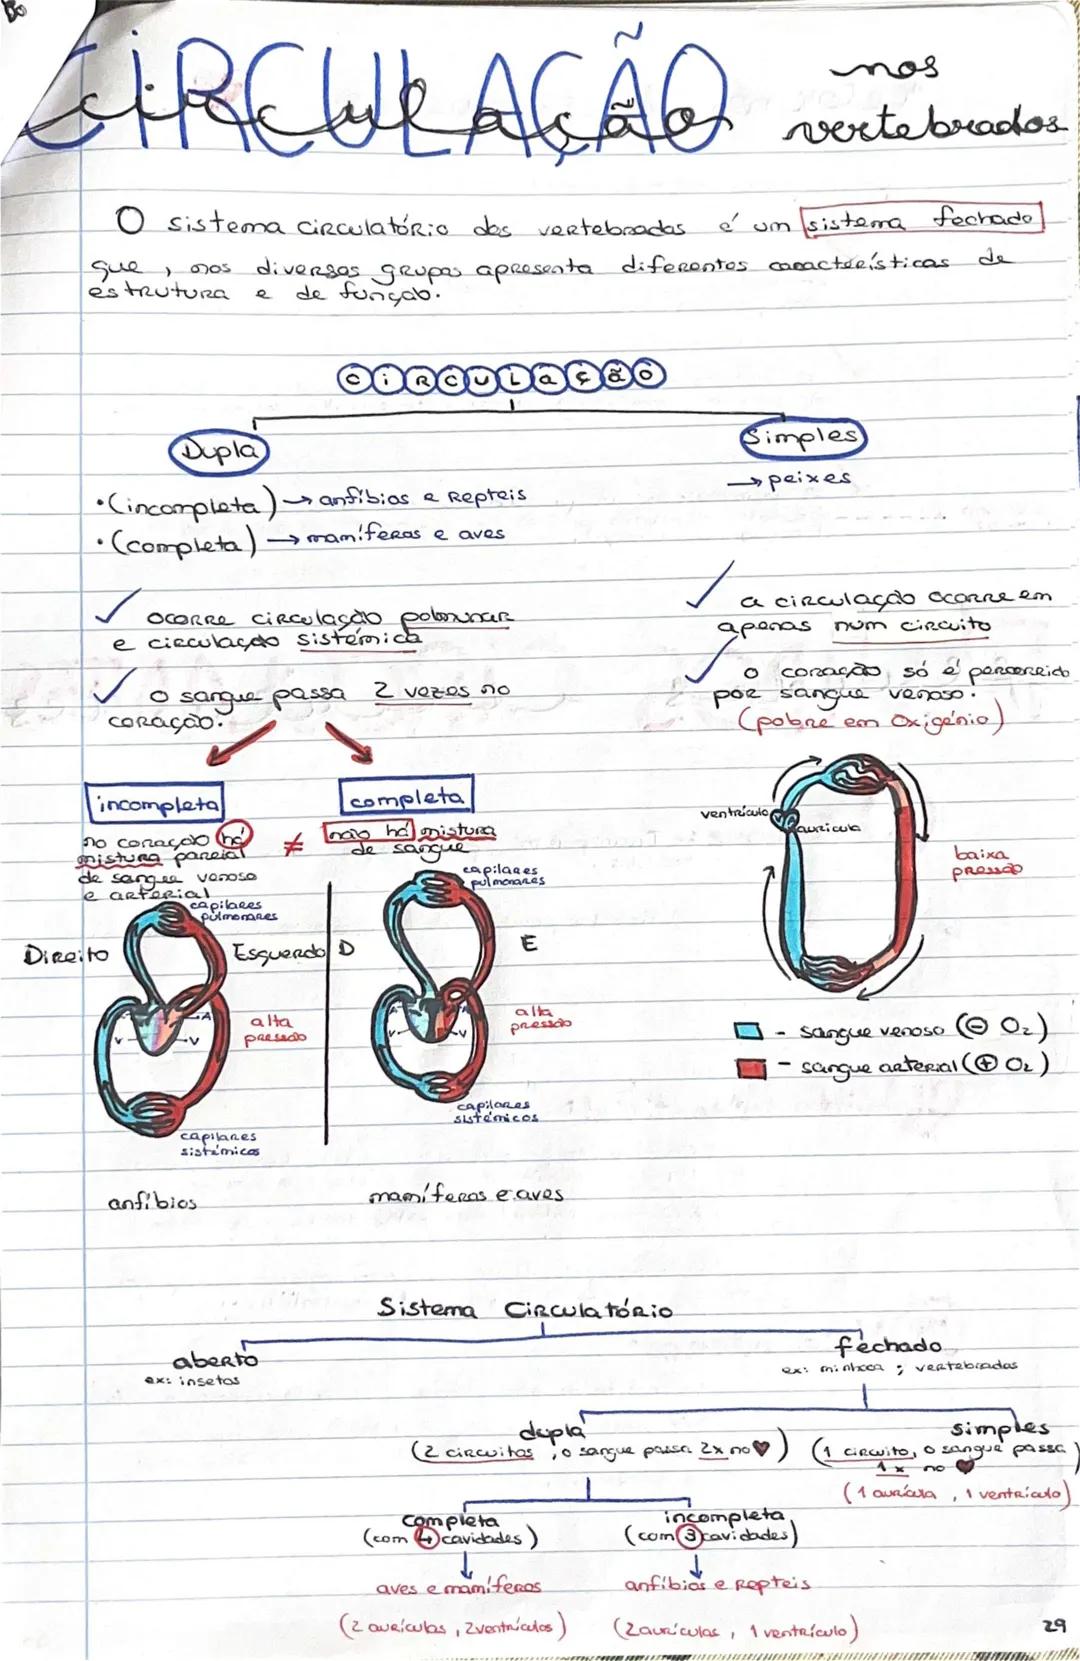 CIRCULAÇÃO
circulação
nos
vertebrados
O sistema circulatório dos vertebrados é um sistema fechado
que, nos diversos grupos apresenta diferentes características de
estrutura e de função.
CIRCULAÇÃO
Dupla
Simples
→ peixes
• (incompleta) → anfíbios e Repteis
• (completa) → mamíferos e aves
✓ ocorre circulação polmunar
e circulação sistémica
✓ O sangue passa 2 vezes no
coração.
✓ a circulação ocorre em
apenas num circuito
✓ o coração só é percorrido
por sangue venoso.
(pobre em Oxigénio)
incompleta
no coração há
mistura parcial
de sangue venoso
e arterial
≠
completa
não há mistura
de sangue
capilares
pulmonares
Direito
Esquerdo
A
A
V
V
alta
pressão
capilares
sistémicos
anfíbios
capilares
pulmonares
D
E
A
A
V
V
alta
pressão
capilares
sistémicos
mamíferos e aves
ventrículo
aurícula
baixa
pressão
- sangue venoso (⊖ O₂)
- sangue arterial (⊕ O₂)
Sistema Circulatório
aberto
ex: insetos
fechado
ex: minhoca ; vertebrados
dupla
(2 circuitos, o sangue passa 2x no ♥)
simples
(1 circuito, o sangue passa
1x no ♥)
(1 aurícula, 1 ventrículo)
completa
(com 4 cavidades)
aves e mamíferos
(2 aurículas, 2 ventrículos)
incompleta
(com 3 cavidades)
anfíbios e Repteis
(2 aurículas, 1 ventrículo)
29